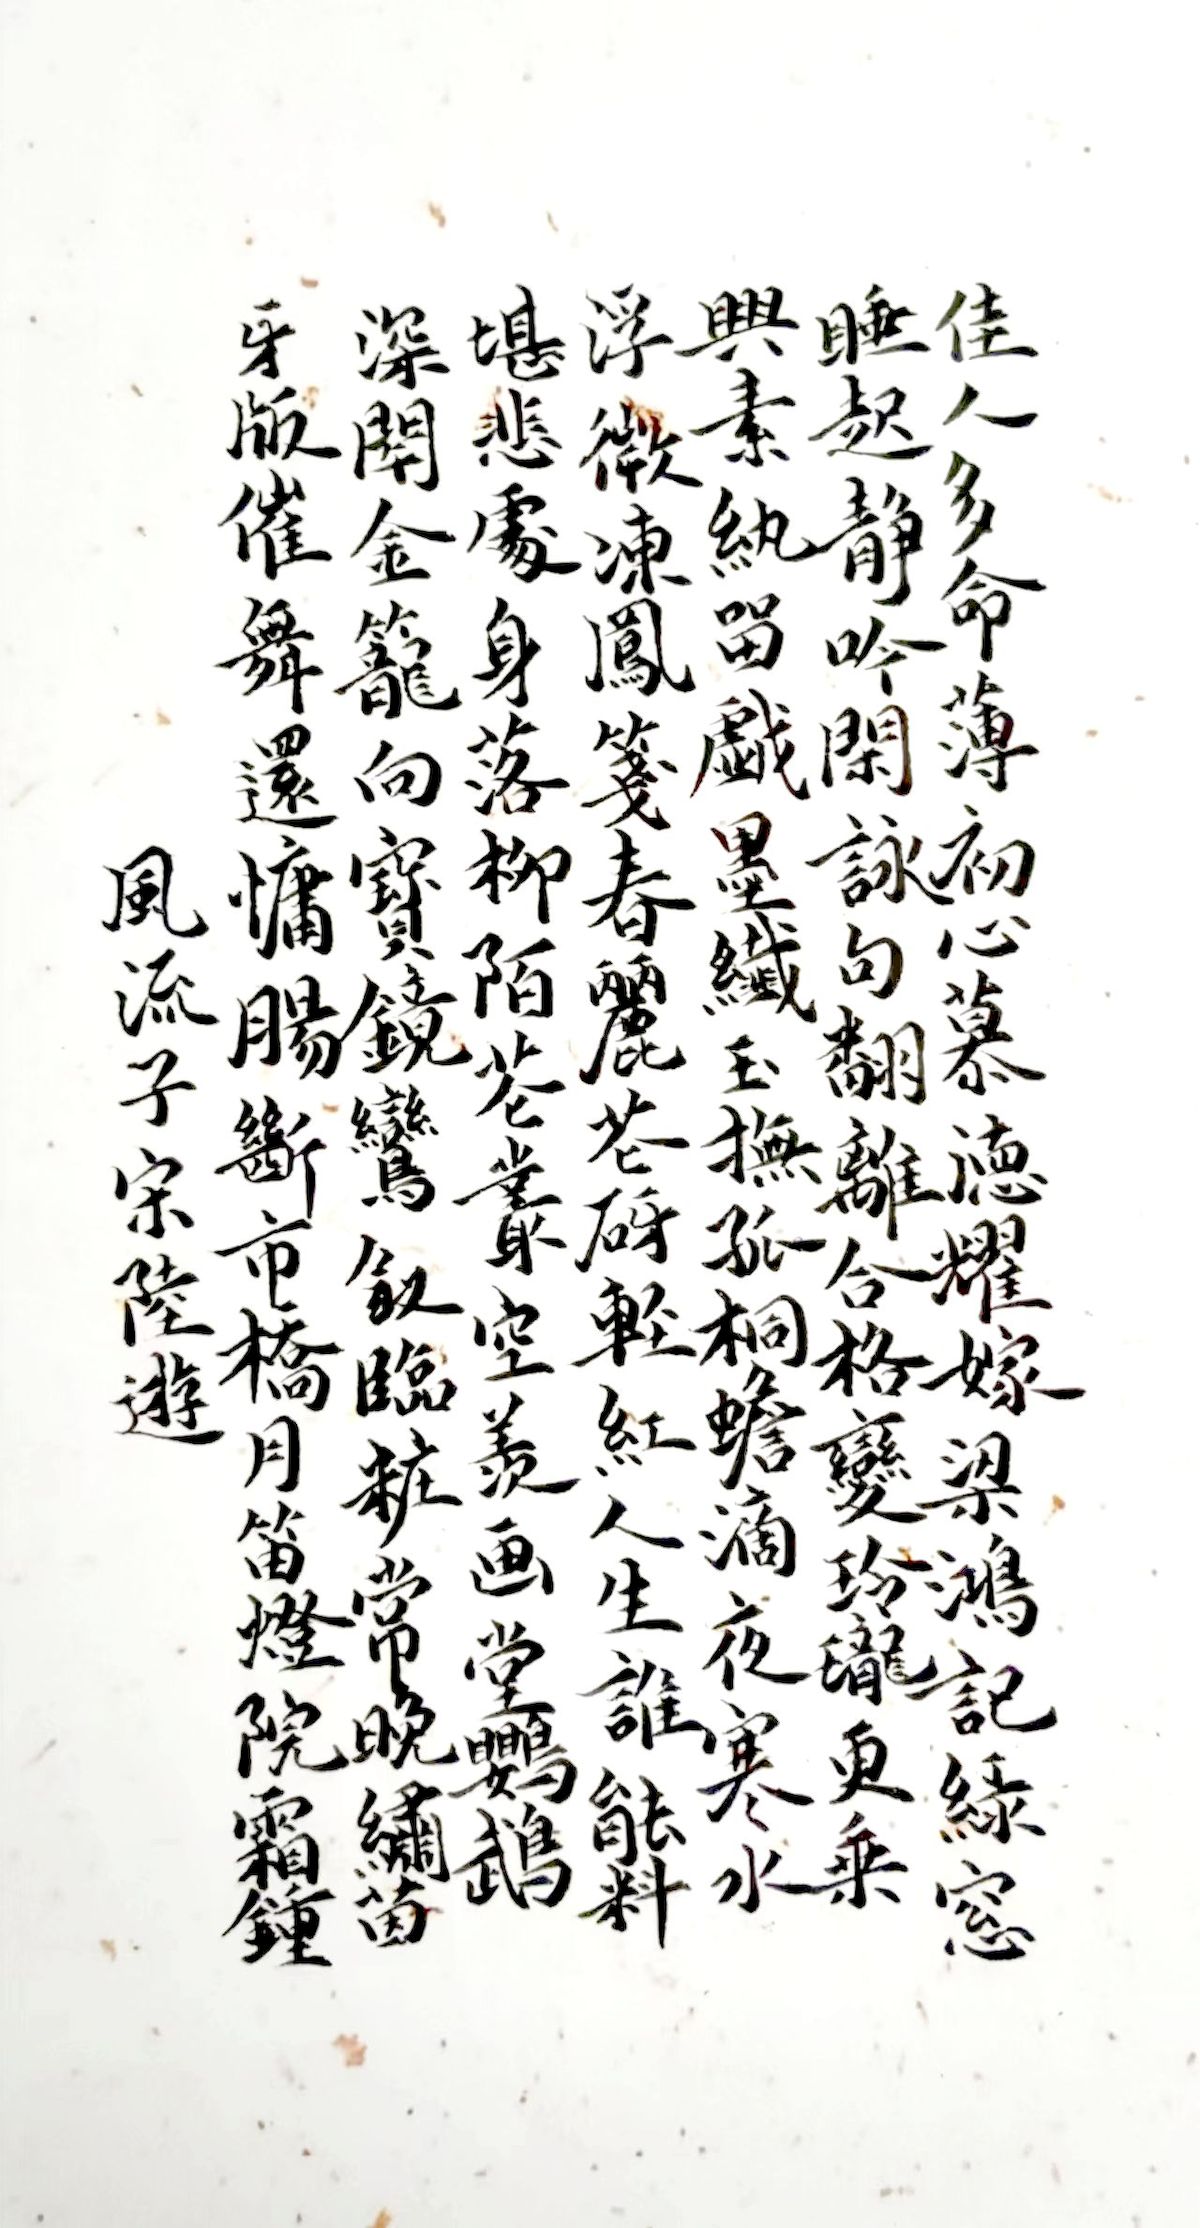 佳人多命薄初心慕德耀嫁梁鴻記綠窓
睡起靜吟閑詠句翻離合格變玲瓏更乘
興素紈留戲墨纖玉撫孤桐蟾滴夜寒水
浮微凍鳳箋春麗花砑輕紅人生誰能料
堪悲處身落柳陌花叢空羨画堂鸚鵡
深閉金籠向寶鏡鸞釵臨粧常晚繡茵
牙版催舞還慵腸斷市橋月笛燈院霜鍾
風流子宋陸遊